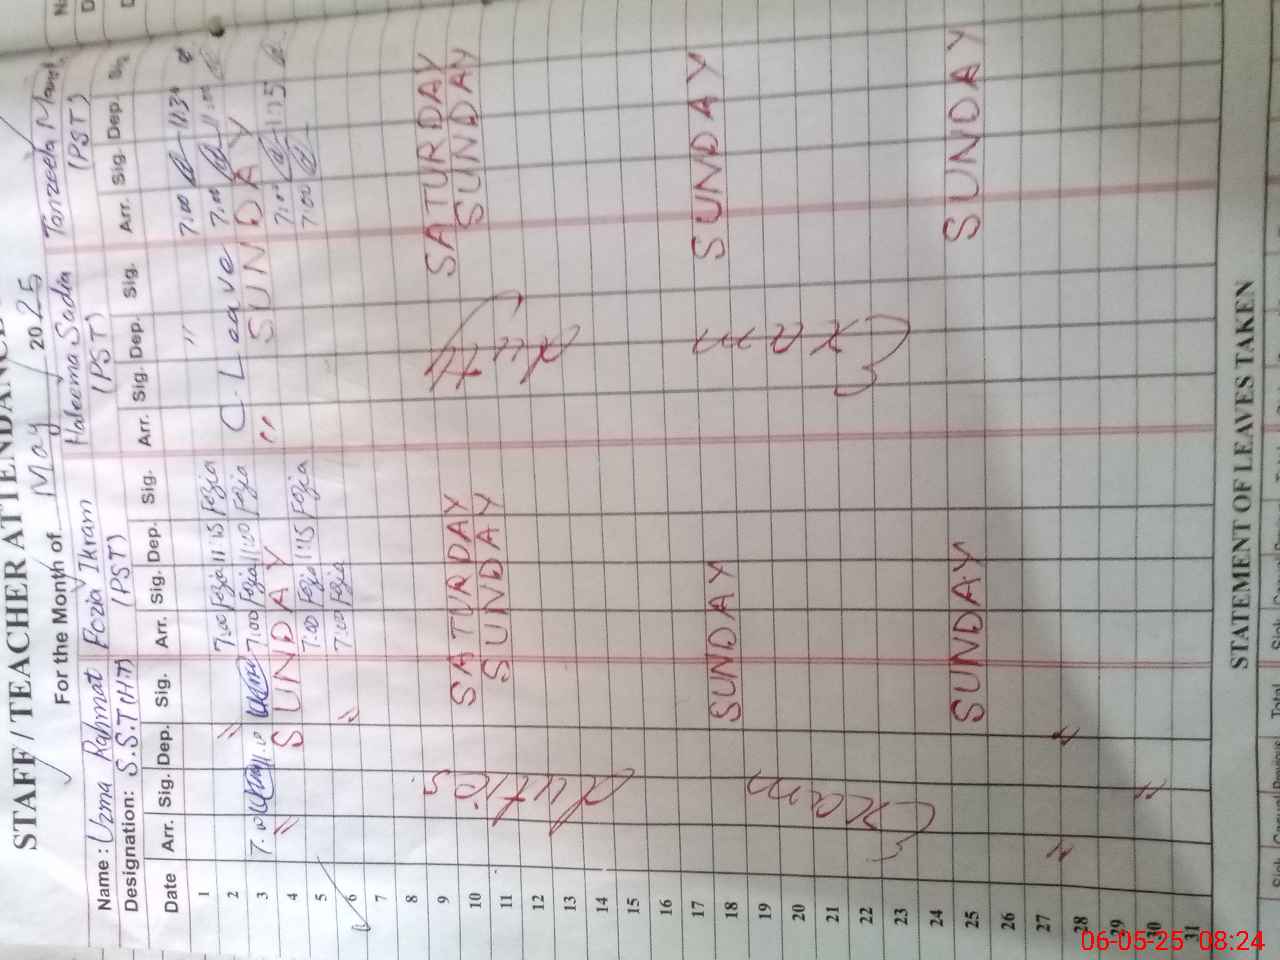 STAFF / TEACHER ATTENDANCE
For the Month of May 2025
Name : Uzma Rahmat Fozia Ikram Haleema Sadia Tanzeela
Designation: S.S.T (HT) (PST) (PST) (PST)
Date Arr. Sig. Dep. Sig. Arr. Sig. Dep. Sig. Arr. Sig. Dep. Sig. Arr. Sig. Dep. Sig
1
2 " 7:00 Fozia 11:15 Fozia " 7:00 11:30
3 7:00 11:10 7:00 Fozia 11:00 Fozia C. Leave 7:00 11:00
4 " SUNDAY " SUNDAY
5 7:00 Fozia 11:15 Fozia 7:00 11:15
6 " 7:00 Fozia 7:00
7
8
9
10 SATURDAY SATURDAY
11 SUNDAY SUNDAY
12
13
14
15
16
17
18 SUNDAY SUNDAY
19
20
21
22
23
24
25 SUNDAY SUNDAY
26
27
28
29
30
31
Exam duties
Exam
STATEMENT OF LEAVES TAKEN
06-05-25 08:24